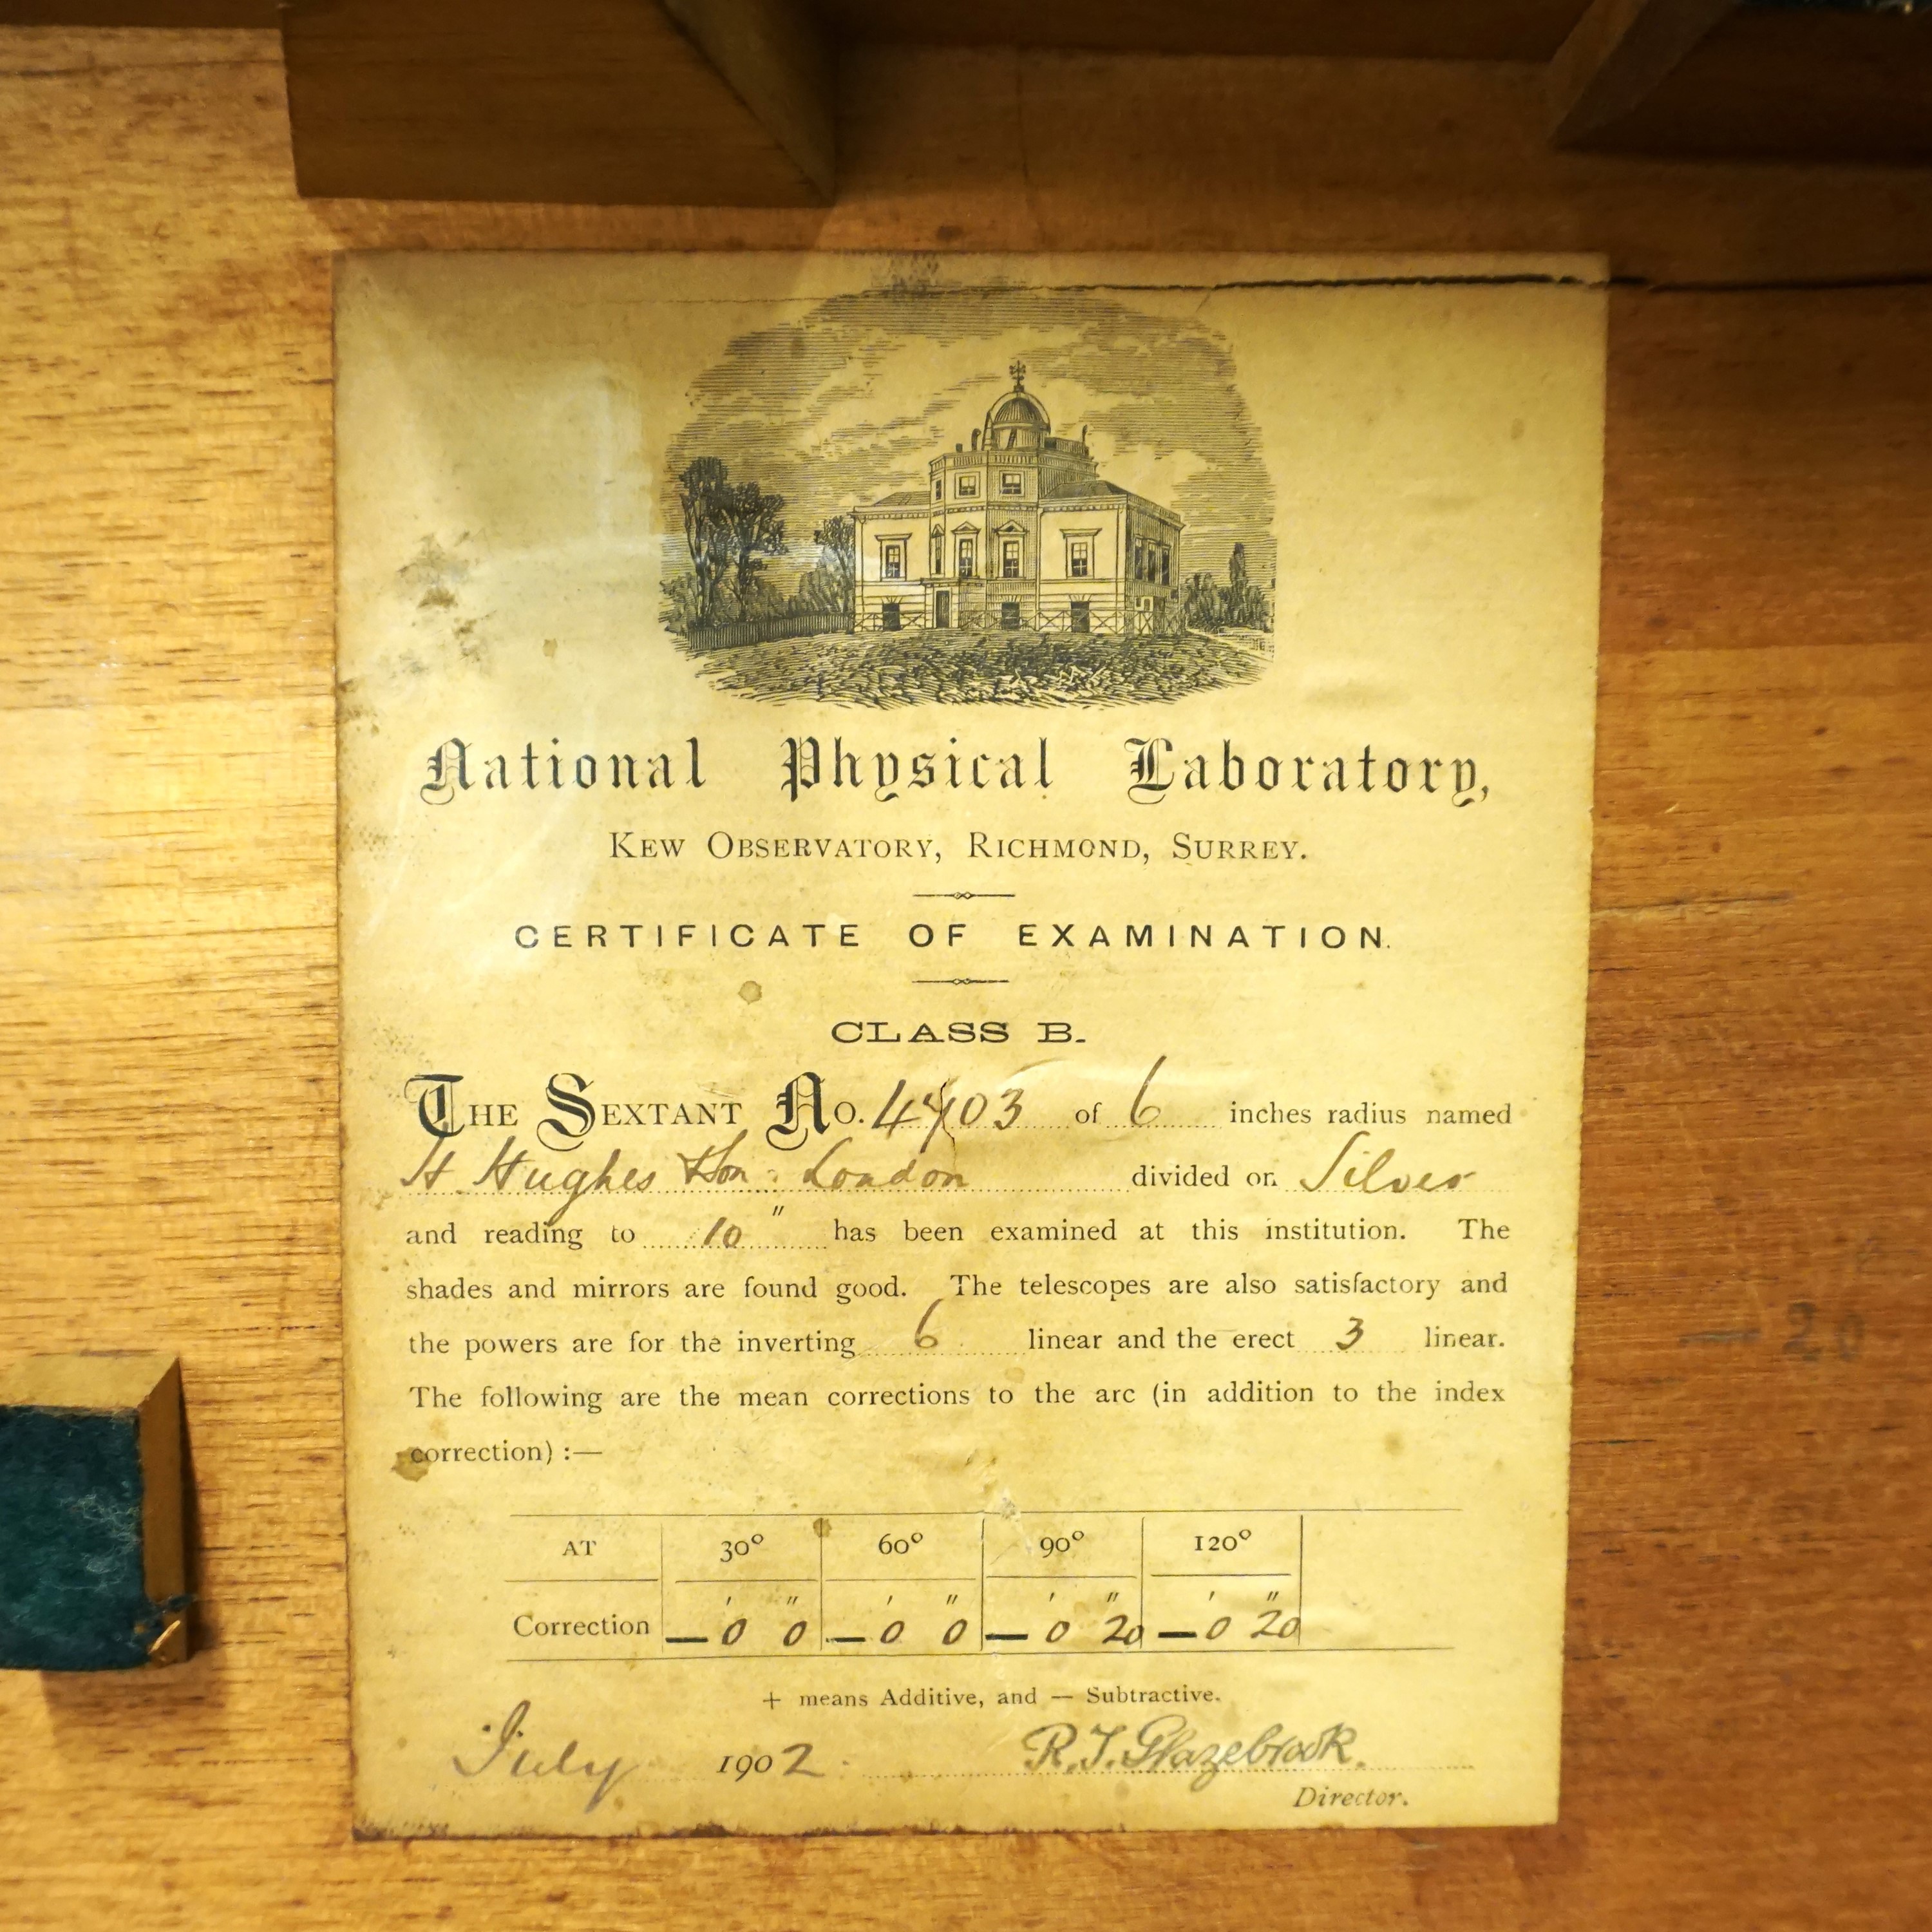 National Physical Laboratory,
KEW OBSERVATORY, RICHMOND, SURREY.
CERTIFICATE OF EXAMINATION.
CLASS B.
THE SEXTANT No. of 6 inches radius named
H. Hughes & Son: London divided on Silver
and reading to 10" has been examined at this institution. The
shades and mirrors are found good. The telescopes are also satisfactory and
the powers are for the inverting 6 linear and the erect 3 linear.
The following are the mean corrections to the arc (in addition to the index
correction) :—
AT 30° 60° 90° 120°
' " ' " ' " ' "
Correction — 0 0 — 0 0 — 0 20 — 0 20
+ means Additive, and — Subtractive.
July 1902. R. T. Glazebrook.
Director.
— 20